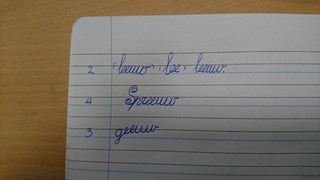 2 leeuw leeuw.
4 Spreeuw
3 geeuw